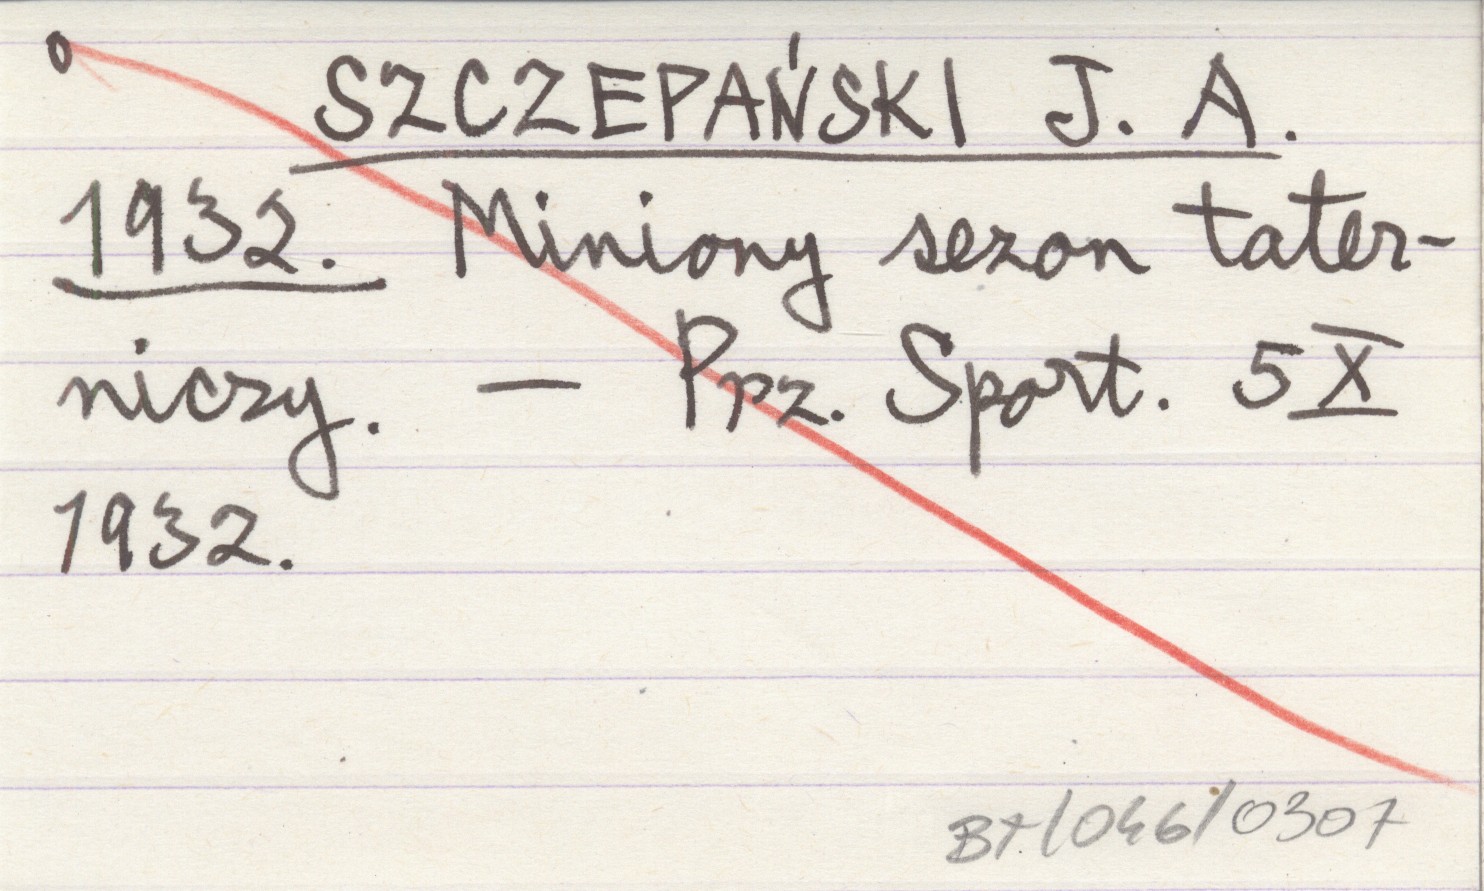 SZCZEPAŃSKI J. A.
1932. Miniony sezon tater-
niczy. — Ppz. Sport. 5 X
1932.
BT/046/0307